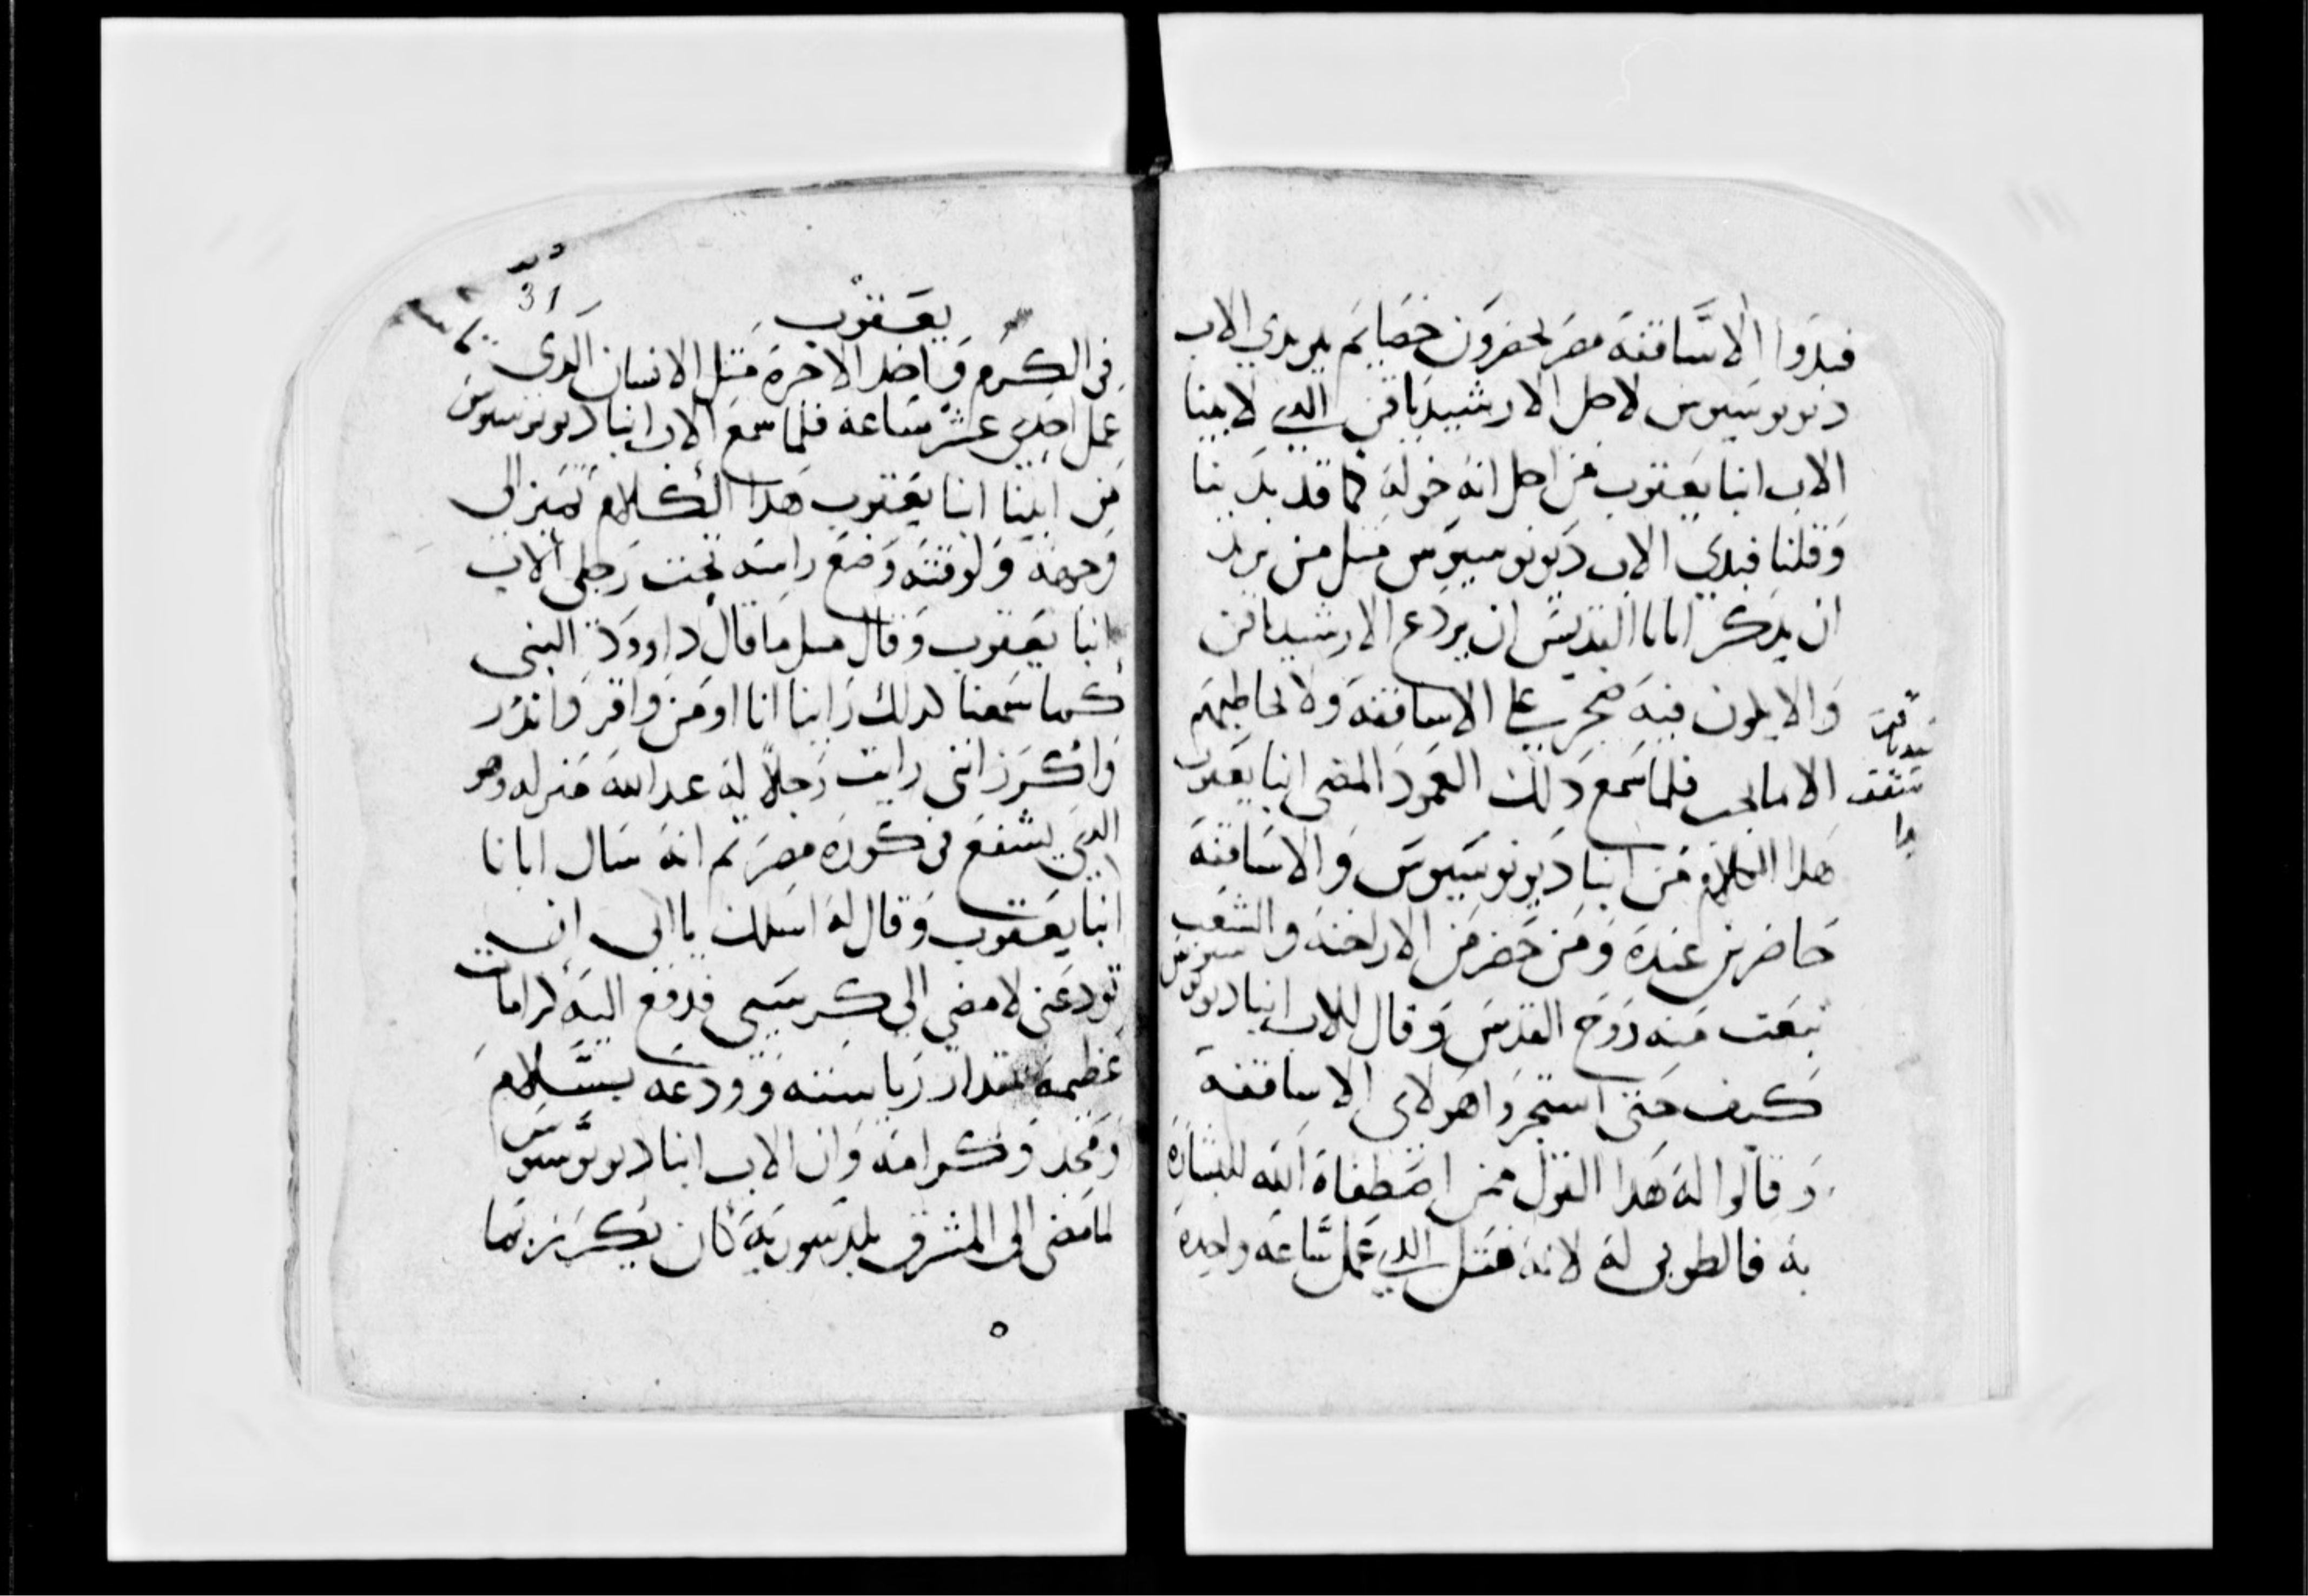 فبدوا الاساقفه مصر يحضرون خصايم بين يدي الاب
ديونوسيوس لاجل الارشيدياقن الدي لابينا
الاب انبا يعقوب من اجل انه خوله كما قد بدينا
وقلنا فبدي الاب ديونوسيوس مثل من يريد
ان يدكر ابانا القديس ان يردع الارشيدياقن
والا يكون فيه تجري علي الاساقفه ولا يخاطبهم
الا ما يجب فلما سمع دلك العمود المضي انبا يعقوب
هدا الكلام من انبا ديونوسيوس والاساقفه
حاضرين عنده ومن حضر من الاراخنه والشعب
نبعت منه روح القدس وقال للاب انبا ديونوسيوس
كيف حتي استجروا هولاي الاساقفه
وقالوا له هدا القول ممن اصطفاه الله للبشاره
به فالطوبي له لانه مثل الدي عمل ساعه واحده
يعقوب
31
في الكرم واخد الاجره مثل الانسان الدي
عمل احدي عشر ساعه فلما سمع الاب انبا ديونوسيوس
من ابينا انبا يعقوب هدا الكلام تميز الي
وجهه ولوقته وضع راسه تحت رجلي الاب
انبا يعقوب وقال مثل ما قال داوود النبي
كما سمعنا كدلك راينا انا اومن واقر واندر
واكرز انني رايت رجلا له عند الله منزله وهو
الدي يشفع في كورة مصر ثم انه سال ابانا
انبا يعقوب وقال له اسلك يا ابي ان
تودعني لامضي الي كرسيي فدفع اليه كرامات
عظيمه بمقدار رياسته وودعه بسلام
ومجد وكرامه وان الاب انبا ديونوسيوس
لما مضي الي المشرق بلد سوريه كان يكرز بما